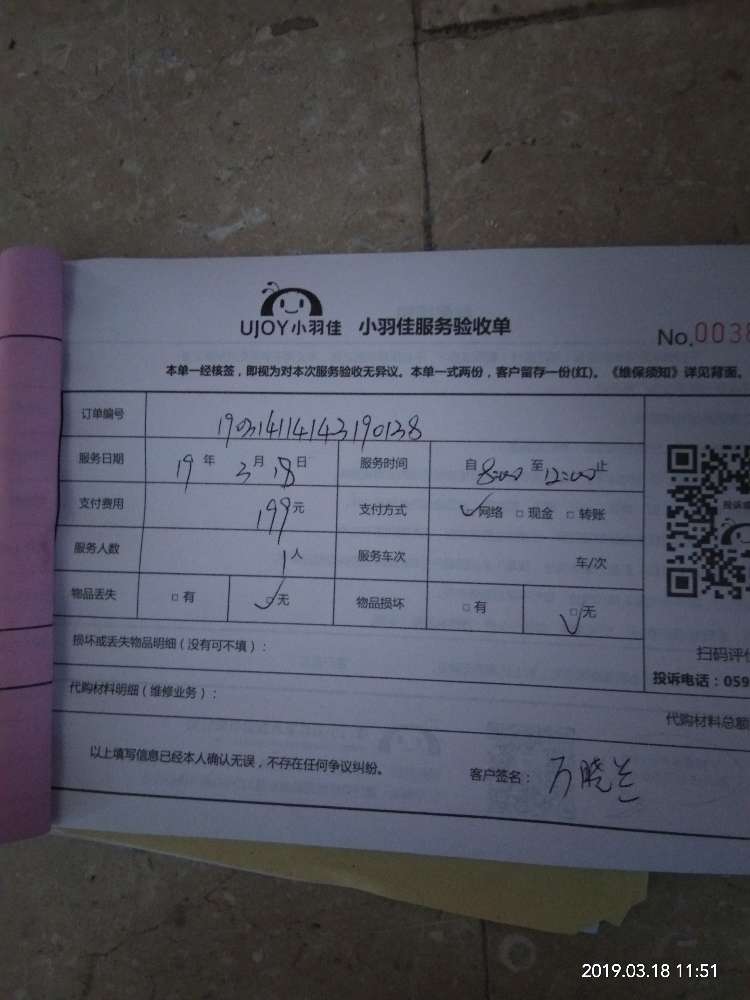 UJOY小羽佳 小羽佳服务验收单
No.003
本单一经核签，即视为对本次服务验收无异议。本单一式两份，客户留存一份(红)。《维保须知》详见背面。
订单编号 190314114143190138
服务日期 19年3月18日 服务时间 自8:00至12:00止
支付费用 199元 支付方式 ✓网络 □现金 □转账
服务人数 1人 服务车次 车/次
物品丢失 □有 ☑无 物品损坏 □有 ☑无
损坏或丢失物品明细（没有可不填）：
扫码评
投诉电话：059
代购材料明细（维修业务）：
代购材料总额
以上填写信息已经本人确认无误，不存在任何争议纠纷。 客户签名：万晓兰
2019.03.18 11:51